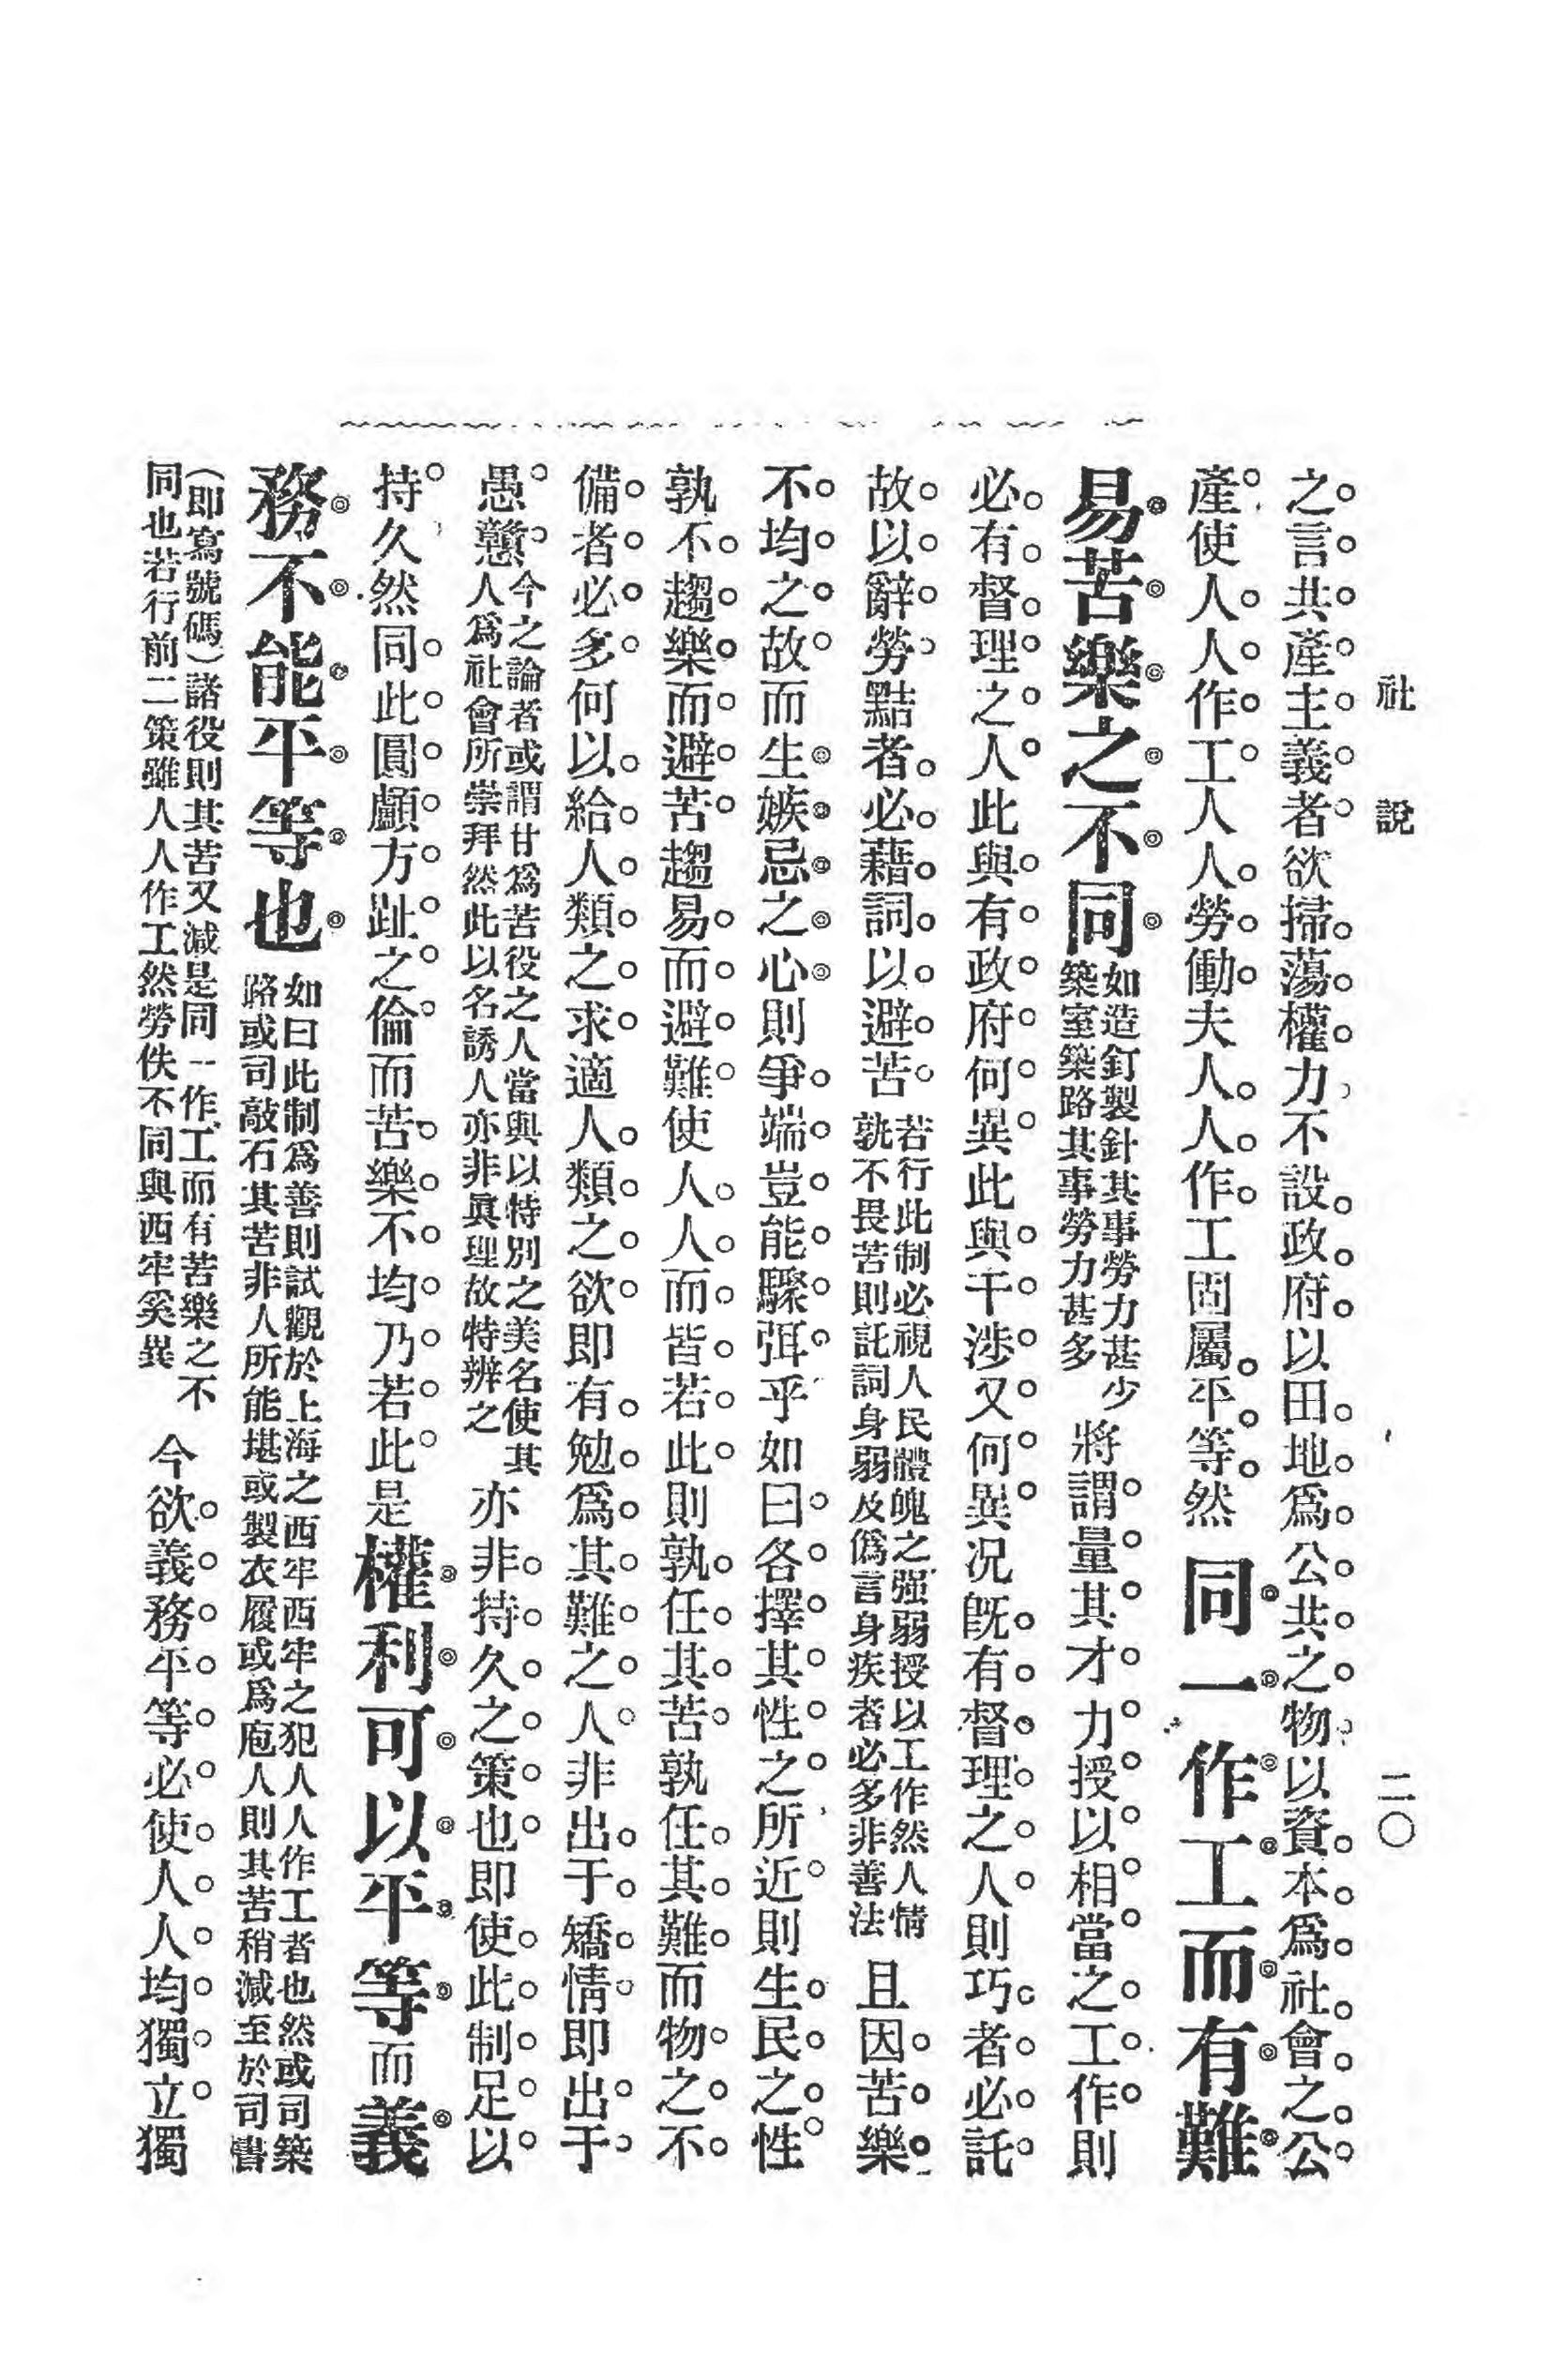 社說
二〇
之言共產主義者欲掃蕩權力不設政府以田地爲公共之物以資本爲社會之公
產使人人作工人人勞働夫人人作工固屬平等然同一作工而有難
易苦樂之不同如造釘製針其事勞力甚少築室築路其事勞力甚多將謂量其才力授以相當之工作則
必有督理之人此與有政府何異此與干涉又何異况既有督理之人則巧者必託
故以辭勞黠者必藉詞以避苦若行此制必視人民體魄之强弱授以工作然人情孰不畏苦則託詞身弱及僞言身疾者必多非善法且因苦樂
不均之故而生嫉忌之心則爭端豈能驟弭乎如曰各擇其性之所近則生民之性
孰不趨樂而避苦趨易而避難使人人而皆若此則孰任其苦孰任其難而物之不
備者必多何以給人類之求適人類之欲即有勉爲其難之人非出于矯情即出于
愚戇今之論者或謂甘爲苦役之人當與以特別之美名使其人爲社會所崇拜然此以名誘人亦非眞理故特辨之亦非持久之策也即使此制足以
持久然同此圓顱方趾之倫而苦樂不均乃若此是權利可以平等而義
務不能平等也如曰此制爲善則試觀於上海之西牢西牢之犯人人作工者也然或司築路或司敲石其苦非人所能堪或製衣履或爲庖人則其苦稍減至於司書
(即寫號碼)諸役則其苦又減是同一作工而有苦樂之不同也若行前二策雖人人作工然勞佚不同與西牢奚異今欲義務平等必使人人均獨立獨